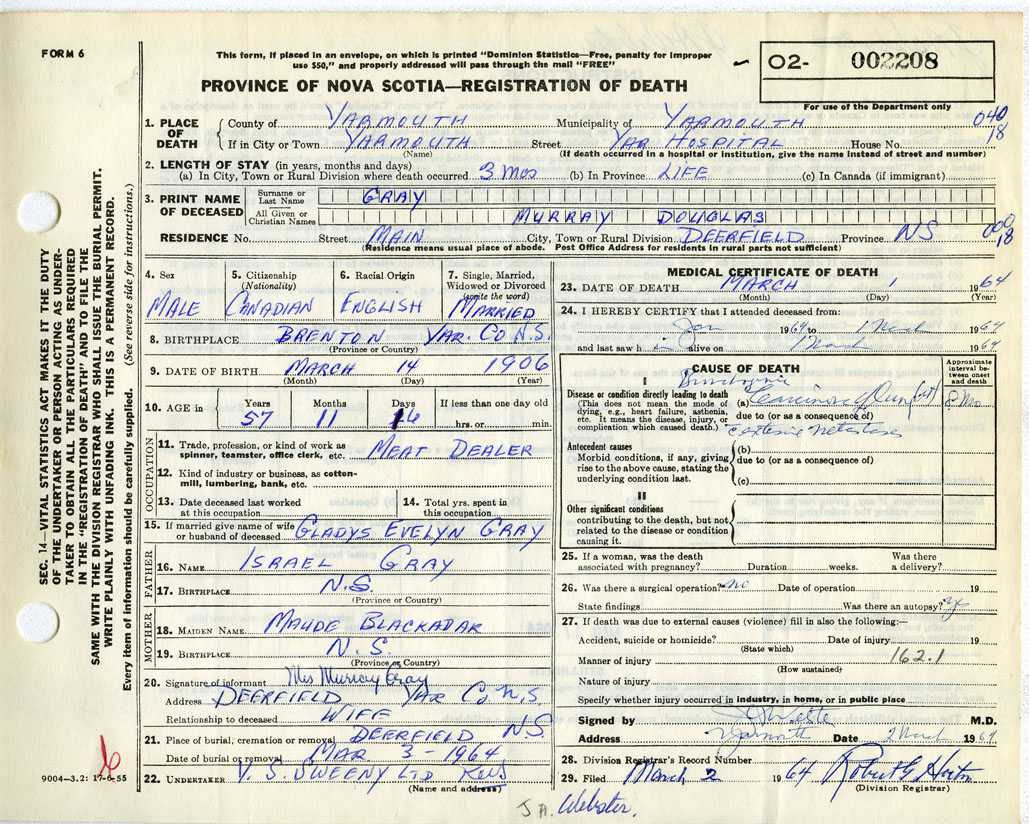 FORM 6
This form, if placed in an envelope, on which is printed "Dominion Statistics—Free, penalty for improper
use $50," and properly addressed will pass through the mail "FREE"
O2- 002208
PROVINCE OF NOVA SCOTIA—REGISTRATION OF DEATH
For use of the Department only
1. PLACE OF DEATH County of YARMOUTH Municipality of YARMOUTH 040
If in City or Town YARMOUTH Street YAR HOSPITAL House No. 18
(Name) (If death occurred in a hospital or institution, give the name instead of street and number)
2. LENGTH OF STAY (in years, months and days)
(a) In City, Town or Rural Division where death occurred 3 Mos (b) In Province LIFE (c) In Canada (if immigrant)
3. PRINT NAME OF DECEASED
Surname or Last Name GRAY
All Given or Christian Names MURRAY DOUGLAS
RESIDENCE No. Street MAIN City, Town or Rural Division DEERFIELD Province NS 000 18
(Residence means usual place of abode. Post Office Address for residents in rural parts not sufficient)
4. Sex MALE
5. Citizenship (Nationality) CANADIAN
6. Racial Origin ENGLISH
7. Single, Married, Widowed or Divorced (write the word) MARRIED
8. BIRTHPLACE BRENTON YAR. CO N.S.
(Province or Country)
9. DATE OF BIRTH MARCH 14 1906
(Month) (Day) (Year)
10. AGE in Years 57 Months 11 Days 16 If less than one day old hrs. or min.
OCCUPATION
11. Trade, profession, or kind of work as
spinner, teamster, office clerk, etc. MEAT DEALER
12. Kind of industry or business, as cotton-
mill, lumbering, bank, etc.
13. Date deceased last worked at this occupation
14. Total yrs. spent in this occupation
15. If married give name of wife or husband of deceased GLADYS EVELYN GRAY
FATHER
16. NAME ISRAEL GRAY
17. BIRTHPLACE N.S.
(Province or Country)
MOTHER
18. MAIDEN NAME MAUDE BLACKADAR
19. BIRTHPLACE N.S.
(Province or Country)
20. Signature of informant Mrs Murray Gray
Address DEERFIELD YAR CO N.S.
Relationship to deceased WIFE
21. Place of burial, cremation or removal DEERFIELD N.S.
Date of burial or removal MAR. 3 - 1964
22. UNDERTAKER V. S. SWEENY LTD
(Name and address)
MEDICAL CERTIFICATE OF DEATH
23. DATE OF DEATH MARCH 1 1964
(Month) (Day) (Year)
24. I HEREBY CERTIFY that I attended deceased from:
Jan 1964 to 1 March 1964
and last saw h im alive on 1 March 1964
CAUSE OF DEATH
Approximate interval between onset and death
I
Disease or condition directly leading to death
(This does not mean the mode of
dying, e.g., heart failure, asthenia,
etc. It means the disease, injury, or
complication which caused death.)
(a) Bronchogenic Carcinoma of lung (left) 8 Mo
due to (or as a consequence of)
Antecedent causes
Morbid conditions, if any, giving
rise to the above cause, stating the
underlying condition last.
(b)
due to (or as a consequence of)
(c)
II
Other significant conditions
contributing to the death, but not
related to the disease or condition
causing it.
25. If a woman, was the death associated with pregnancy? Duration weeks. Was there a delivery?
26. Was there a surgical operation? No Date of operation 19
State findings Was there an autopsy? Yes
27. If death was due to external causes (violence) fill in also the following:—
Accident, suicide or homicide? Date of injury 19
(State which)
Manner of injury 162.1
(How sustained)
Nature of injury
Specify whether injury occurred in industry, in home, or in public place
Signed by M.D.
Address Yarmouth Date 2 March 1964
28. Division Registrar's Record Number
29. Filed March 2 1964 Robert G Horton
(Division Registrar)
J A. Webster.
SEC. 14—VITAL STATISTICS ACT MAKES IT THE DUTY
OF THE UNDERTAKER OR PERSON ACTING AS UNDER-
TAKER TO OBTAIN ALL THE PARTICULARS REQUIRED
IN THE "REGISTRATION OF DEATH" AND TO FILE THE
SAME WITH THE DIVISION REGISTRAR WHO SHALL ISSUE THE BURIAL PERMIT.
WRITE PLAINLY WITH UNFADING INK. THIS IS A PERMANENT RECORD.
Every item of information should be carefully supplied. (See reverse side for instructions.)
6
9004—3.2: 17-6-55